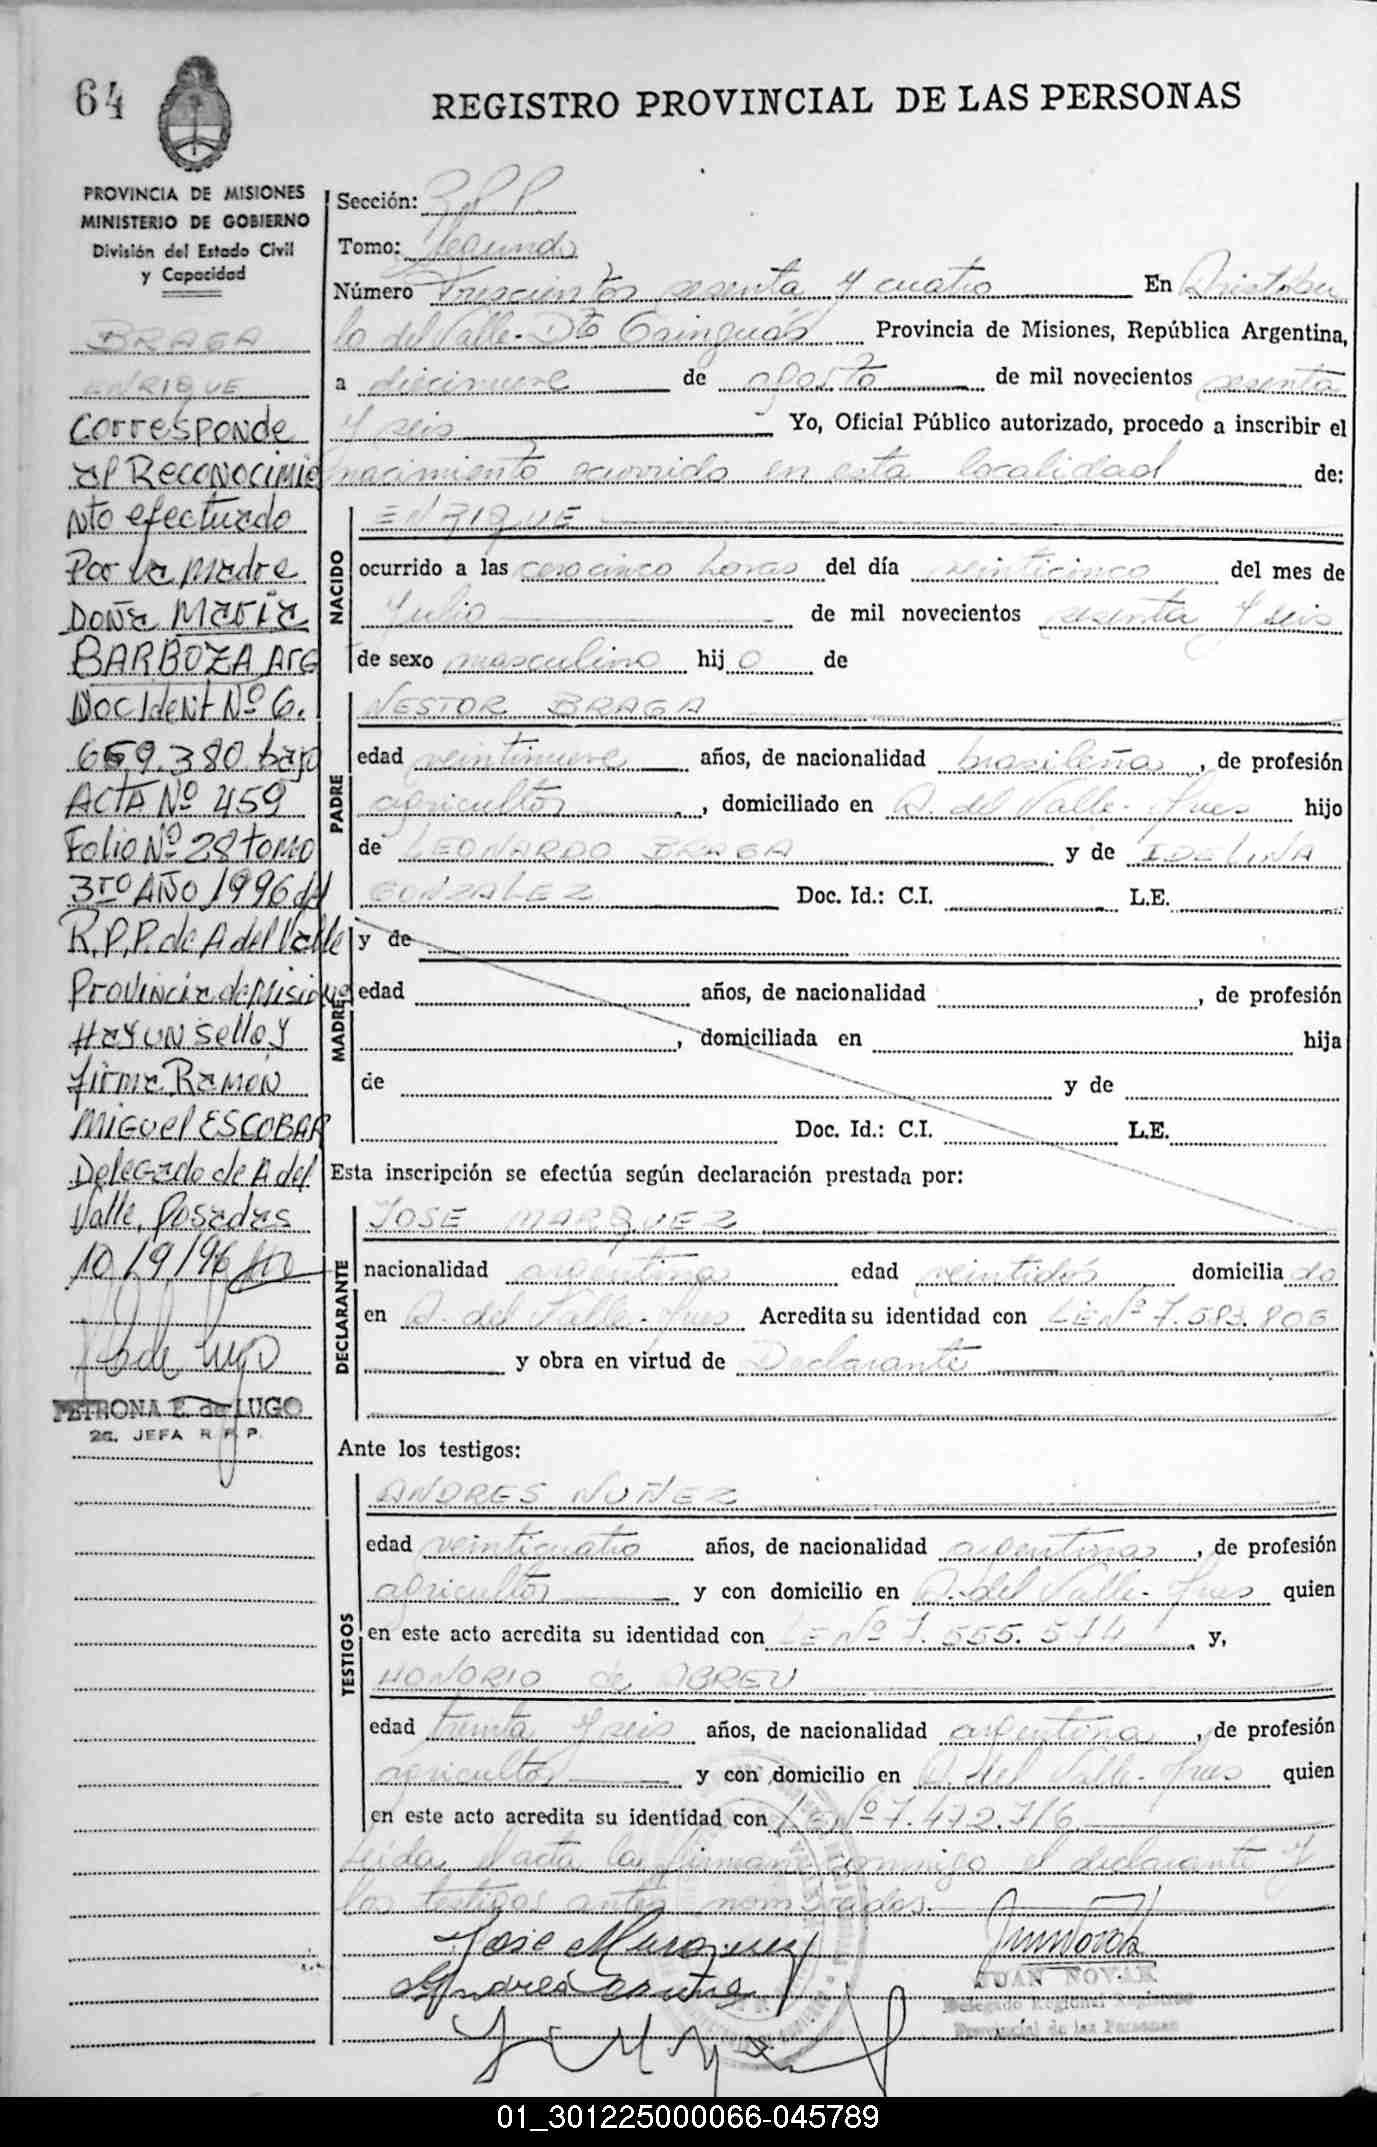 64
REGISTRO PROVINCIAL DE LAS PERSONAS
PROVINCIA DE MISIONES
MINISTERIO DE GOBIERNO
División del Estado Civil
y Capacidad
BRAGA
ENRIQUE
Corresponde
al Reconocimie
nto efectuado
Por la madre
Doña Maria
BARBOZA Arg
Doc Ident Nº 6.
659.380 bajo
ACTA Nº 459
Folio Nº 28 tomo
3ro AÑO 1996 del
R.P.P. de A del Valle
Provincia de Misiones
Hay un Sello y
firma Ramon
Miguel ESCOBAR
Delegado de A del
Valle, Posadas
10/9/96
PETRONA E. de LUGO
2a. JEFA R.P.P.
Sección: R.P.P.
Tomo: Segundo
Número Trescientos sesenta y cuatro En Aristóbu
lo del Valle-Dto Cainguás Provincia de Misiones, República Argentina,
a diecinueve de agosto de mil novecientos sesenta
y seis Yo, Oficial Público autorizado, procedo a inscribir el
nacimiento ocurrido en esta localidad de:
NACIDO
ENRIQUE
ocurrido a las cero cinco horas del día veinticinco del mes de
Julio de mil novecientos sesenta y seis
de sexo masculino hijo de
PADRE
NESTOR BRAGA
edad veintinueve años, de nacionalidad brasileña, de profesión
agricultor, domiciliado en A. del Valle- hijo
de LEONARDO BRAGA y de IDELINA
GONZALEZ Doc. Id.: C.I. L.E.
MADRE
y de
edad años, de nacionalidad , de profesión
, domiciliada en hija
de y de
Doc. Id.: C.I. L.E.
Esta inscripción se efectúa según declaración prestada por:
DECLARANTE
JOSE MARQUEZ
nacionalidad argentina edad veintidós domiciliado
en A. del Valle- Acredita su identidad con LE Nº 7.583.806
y obra en virtud de Declarante
Ante los testigos:
TESTIGOS
ANDRES NUÑEZ
edad veinticuatro años, de nacionalidad argentina, de profesión
agricultor y con domicilio en A. del Valle- quien
en este acto acredita su identidad con LE Nº 7.555.574 y,
HONORIO de ABREU
edad treinta y seis años, de nacionalidad argentina, de profesión
agricultor y con domicilio en A. del Valle- quien
en este acto acredita su identidad con LE Nº 7.472.716
Leída el acta la firman conmigo el declarante y
los testigos antes nombrados.
Jose Marquez
JUAN NOVAK
Delegado Regional Registro
Provincial de las Personas
01_301225000066-045789